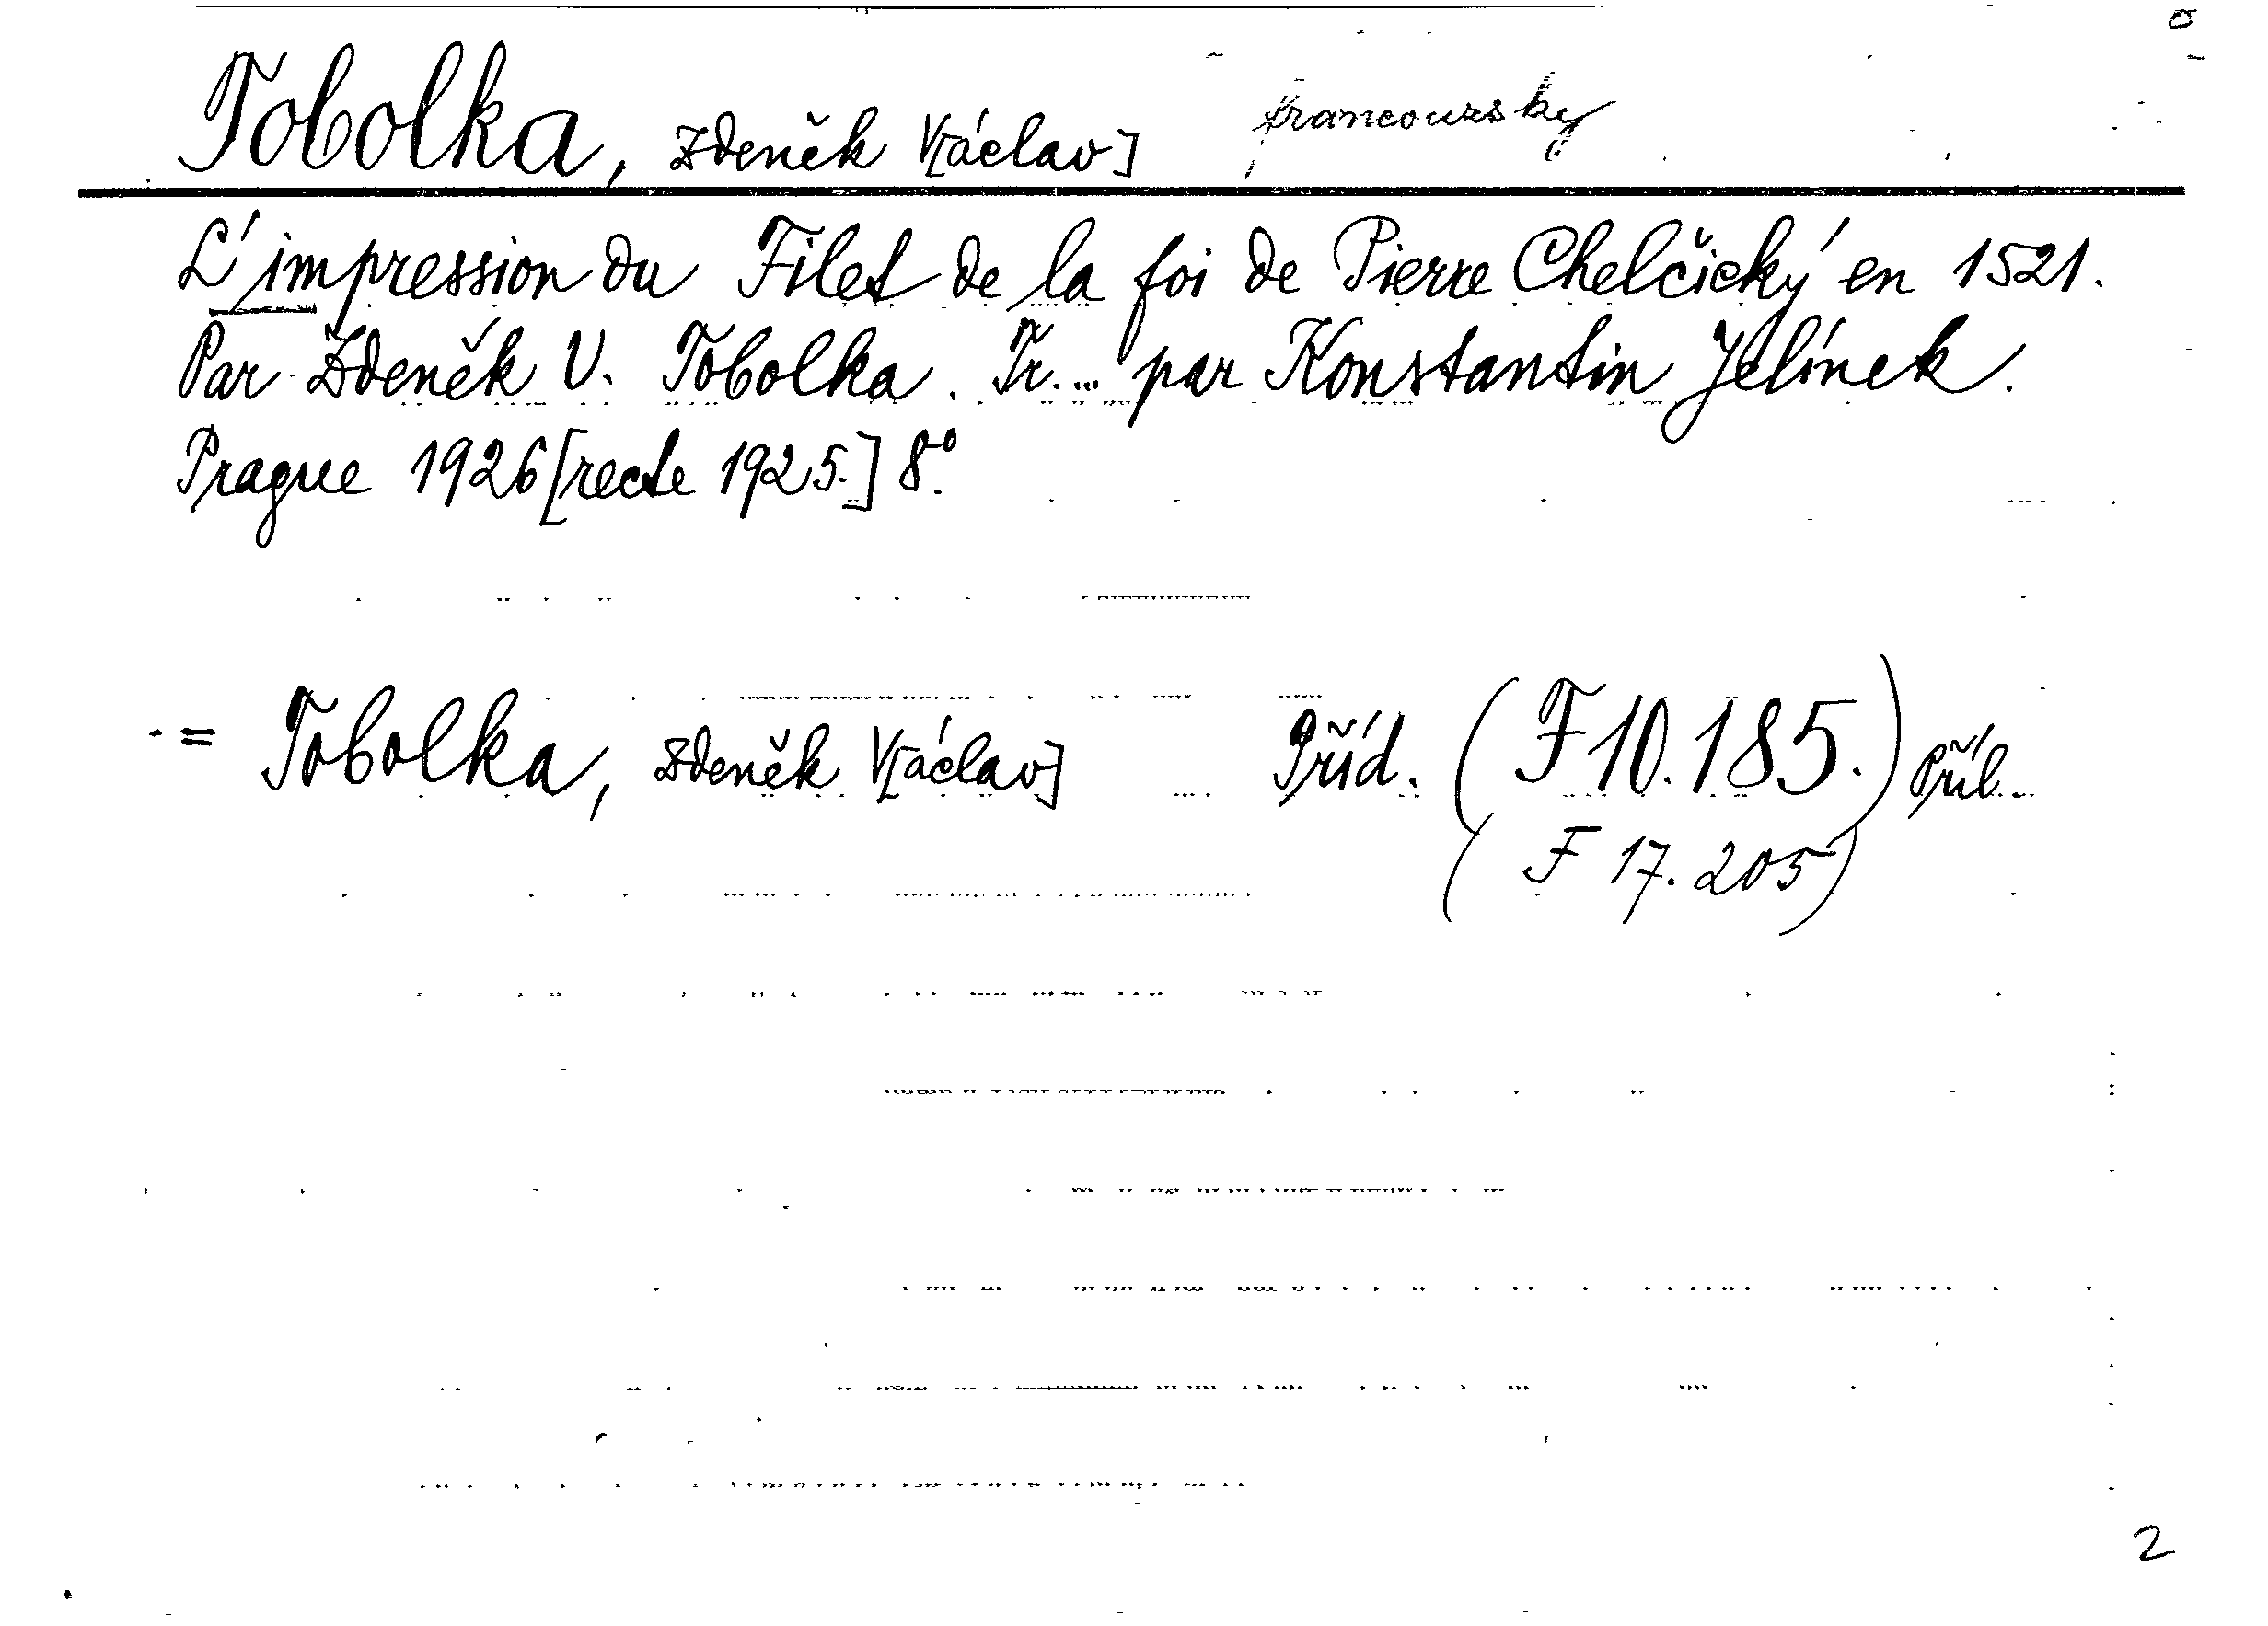 Tobolka, Zdeněk V[áclav] francouzsky
L'impression du Filet de la foi de Pierre Chelčický en 1521.
Par Zdeněk V. Tobolka. Tr. ... par Konstantin Jelínek.
Prague 1926 [recte 1925.] 8°.
= Tobolka, Zdeněk V[áclav] Příd. (F 10.185.) Příl.
(F 17.205)
2